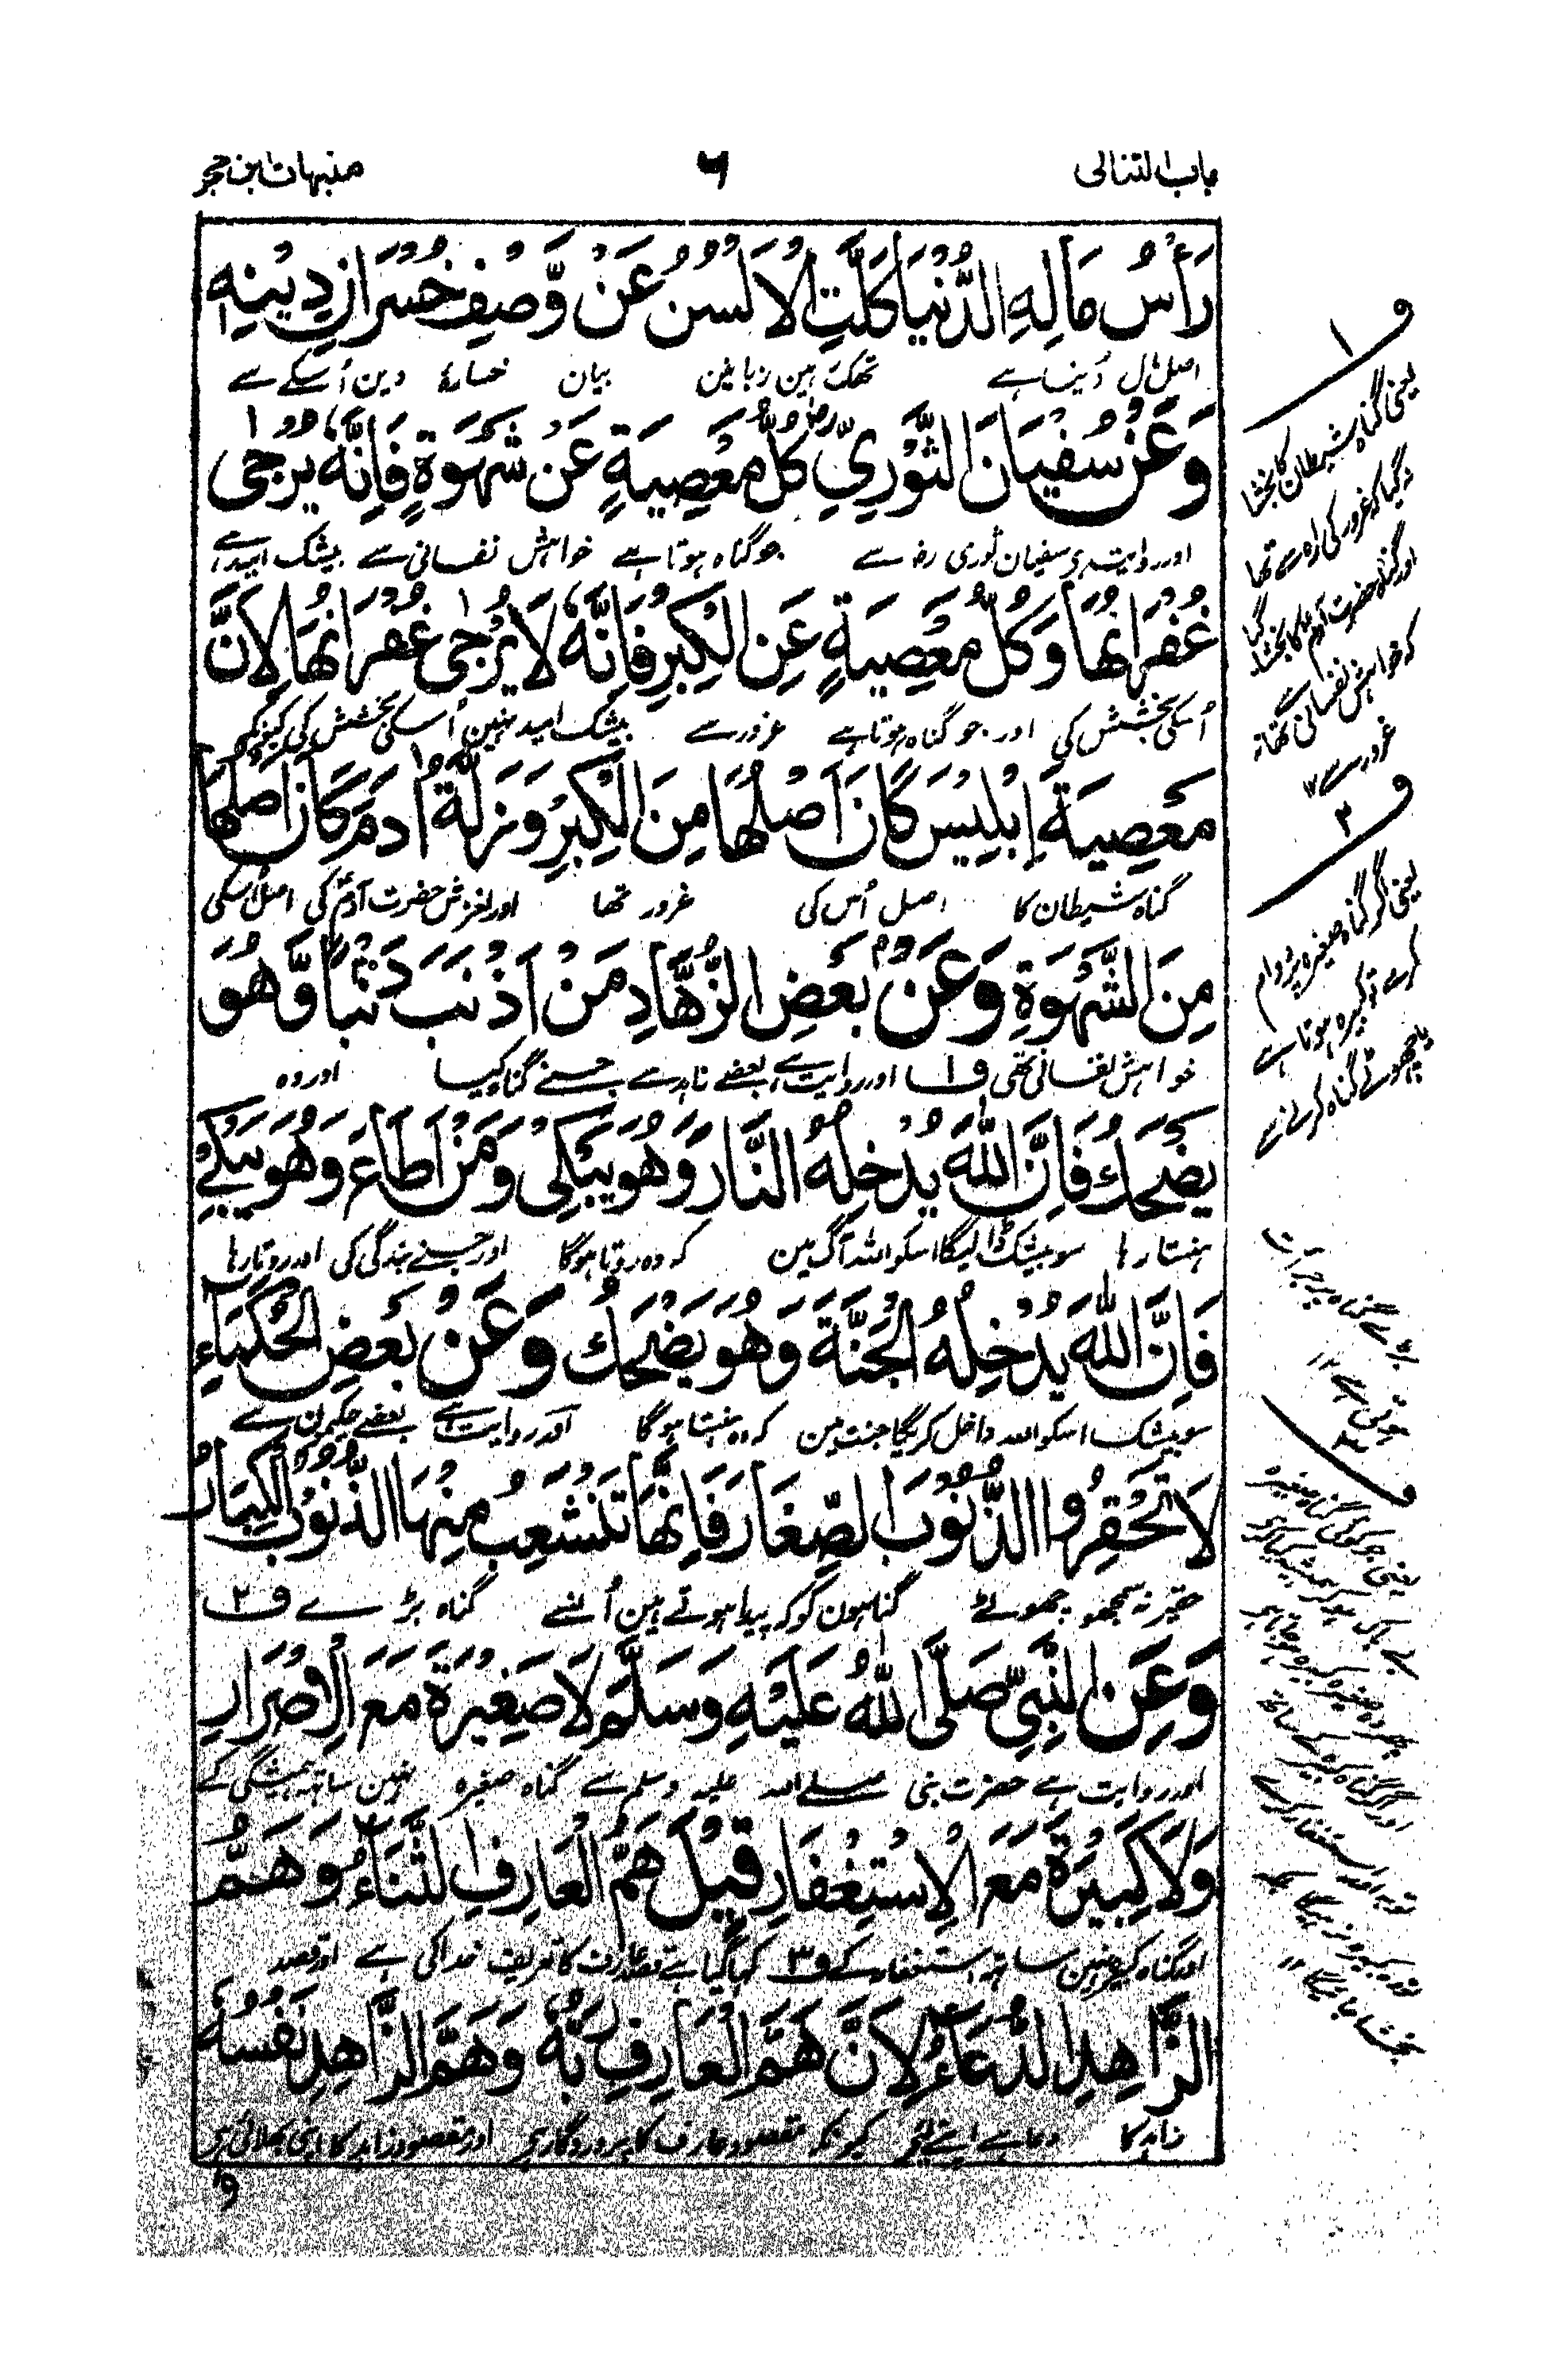 باب الثنائی
٦
منبہات ابن حجر
رَأْسُ مَالِهِ الدُّنْيَا كَلَّتِ الْاَلْسُنُ عَنْ وَّصْفِ خُسْرَانِ دِيْنِهٖ
اصل مال دُنیا ہے تھک ہین زبانین بیان خسارۂ دین اُسکے سے
وَعَنْ سُفْيَانَ الثَّوْرِيِّ رض كُلُّ مَعْصِيَةٍ عَنْ شَهْوَةٍ فَاِنَّهٗ يُرْجٰى
اور روایت ہی سفیان ثوری رض سے جو گناہ ہوتا ہے خواہش نفسانی سے بیشک امید ہے
غُفْرَانُهَا وَكُلُّ مَعْصِيَةٍ عَنِ الْكِبْرِ فَاِنَّهٗ لَا يُرْجٰى غُفْرَانُهَا لِاَنَّ
اُسکی بخشش کی اور جو گناہ ہوتا ہے غرور سے بیشک امید نہین اُسکی بخشش کی کیونکہ
مَعْصِيَةَ اِبْلِيْسَ كَانَ اَصْلُهَا مِنَ الْكِبْرِ وَزَلَّةُ اٰدَمَ كَانَ اَصْلُهَا
گناہ شیطان کا اصل اُس کی غرور تھا اور لغزش حضرت آدمؑ کی اصل اُسکی
مِنَ الشَّهْوَةِ وَعَنْ بَعْضِ الزُّهَّادِ مَنْ اَذْنَبَ ذَنْبًا وَّهُوَ
خواہش نفسانی تھی ف١ اور روایت ہے بعضے زاہد سے جسنے گناہ کیا اور وہ
يَضْحَكُ فَاِنَّ اللّٰهَ يُدْخِلُهُ النَّارَ وَهُوَ يَبْكِىْ وَمَنْ اَطَاعَ وَهُوَ يَبْكِىْ
ہنستا رہا سو بیشک ڈالیگا اسکو اللہ آگ مین کہ وہ روتا ہوگا اور جسنے بندگی کی اور روتا رہا
فَاِنَّ اللّٰهَ يُدْخِلُهُ الْجَنَّةَ وَهُوَ يَضْحَكُ وَعَنْ بَعْضِ الْحُكَمَاءِ
سو بیشک اسکو اللہ داخل کریگا جنت مین کہ وہ ہنستا ہوگا اور روایت ہے بعضے حکیمون سے
لَا تَحْقِرُوا الذُّنُوْبَ الصِّغَارَ فَاِنَّهَا تَنْشَعِبُ مِنْهَا الذُّنُوْبُ الْكِبَارُ
حقیر نہ سمجھو چھوٹے گناہون کو کہ پیدا ہوتے ہین اُنسے گناہ بڑے ف٢
وَعَنِ النَّبِىِّ صَلَّى اللّٰهُ عَلَيْهِ وَسَلَّمَ لَا صَغِيْرَةَ مَعَ الْاِصْرَارِ
اور روایت ہے حضرت نبی صلے اللہ علیہ وسلم سے گناہ صغیرہ نہین ساتھ ہمیشگی کے
وَلَا كَبِيْرَةَ مَعَ الْاِسْتِغْفَارِ قِيْلَ هَمُّ الْعَارِفِ الثَّنَاءُ وَهَمُّ
اور گناہ کبیرہ نہین ساتھ استغفار کے ف٣ کہا گیا ہے قصد عارف کا تعریف خدا کی ہے اور قصد
الزَّاهِدِ الدُّعَاءُ لِاَنَّ هَمَّ الْعَارِفِ رَبُّهٗ وَهَمَّ الزَّاهِدِ نَفْسُهٗ
زاہد کا دعا ہے اپنے لئے کیونکہ مقصود عارف کا پروردگار ہے اور مقصود زاہد کا اپنی بھلائی ہے
ف١
یعنی گناہ شیطان کا بخشا
نہ گیا کہ غرور کی راہ سے تھا
اور گناہ حضرت آدمؑ کا بخشا گیا
کہ خواہش نفسانی سے تھا نہ
غرور سے ١٢
ف٢
یعنی اگر گناہ صغیرہ پر دوام
کرے تو کبیرہ ہوتا ہے
یا چھوٹے گناہ کرنے سے
بڑے گناہ پر جرأت
ہوتی ہے ١٢
ف٣
یعنی جو کوئی گناہ صغیرہ
توبہ اور استغفار کرے
بخشا جائیگا ١٢